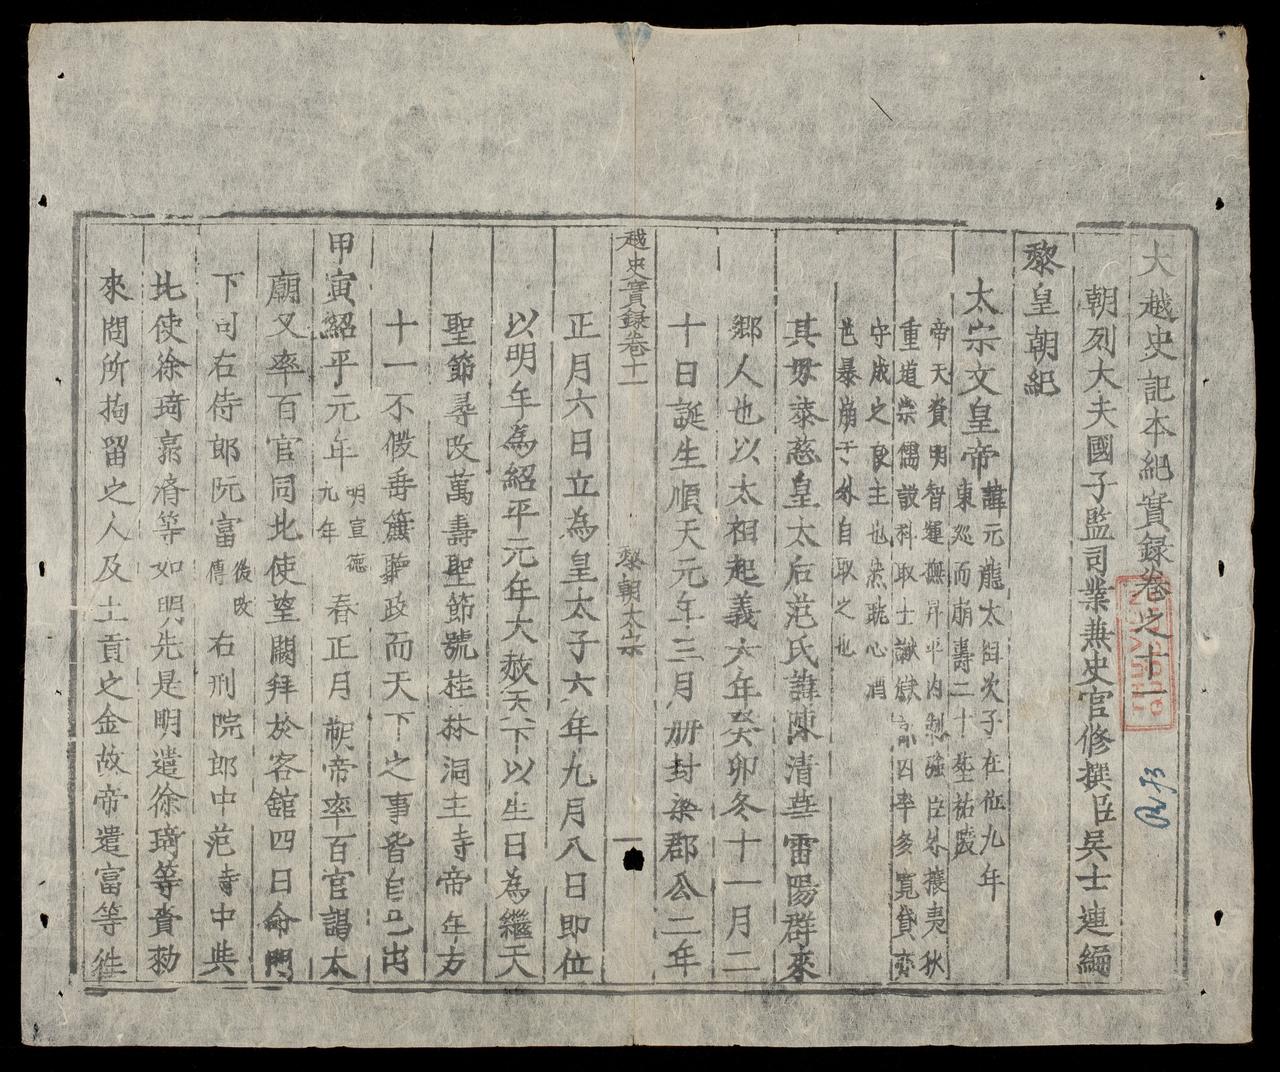 大越史記本紀實録卷之十一
朝列大夫國子監司業兼史官修撰臣吳士連編
黎皇朝紀
太宗文皇帝
諱元龍太祖次子在位九年
東巡而崩壽二十塟祐陵
帝天資明智運撫昇平内制強臣外攘夷狄
重道崇儒設科取士讞獄 囚率多寛貸亦
守成之良主也 耽心酒
色暴崩于外自取之也
其毋恭慈皇太后范氏諱陳清華雷陽群來
郷人也以太祖起義六年癸卯冬十一月二
十日誕生順天元年三月册封梁郡公二年
越史實録卷十一
黎朝太宗
一
正月六日立為皇太子六年九月八日即位
以明年為紹平元年大赦天下以生日為繼天
聖節尋改萬壽聖節號桂林洞主寺帝年方
十一不假垂簾聽政而天下之事皆自己出
甲寅紹平元年 明宣德
九年 春正月朔帝率百官謁太
廟又率百官同北使望闕拜於客舘四日命門
下司右侍郎阮富 後改
傳 右刑院郎中范寺中典
北使徐琦郭濟等如明先是明遣徐琦等賫勑
來問所拘留之人及土貢之金故帝遣富等徃